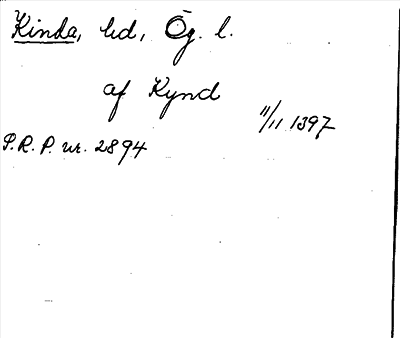 Kinda, hd, Ög. l.
af Kynd
11/11 1397
S.R.P. nr. 2894